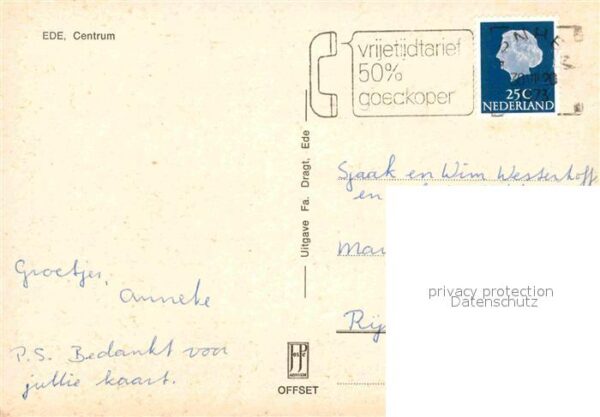 EDE, Centrum
vrijetijdtarief
50%
goedkoper
25C
NEDERLAND
73
Uitgave Fa. Dragt, Ede
Sjaak en Wim Westerhoff
en
Groetjes,
Anneke
P.S. Bedankt voor
jullie kaart.
OFFSET
privacy protection
Datenschutz